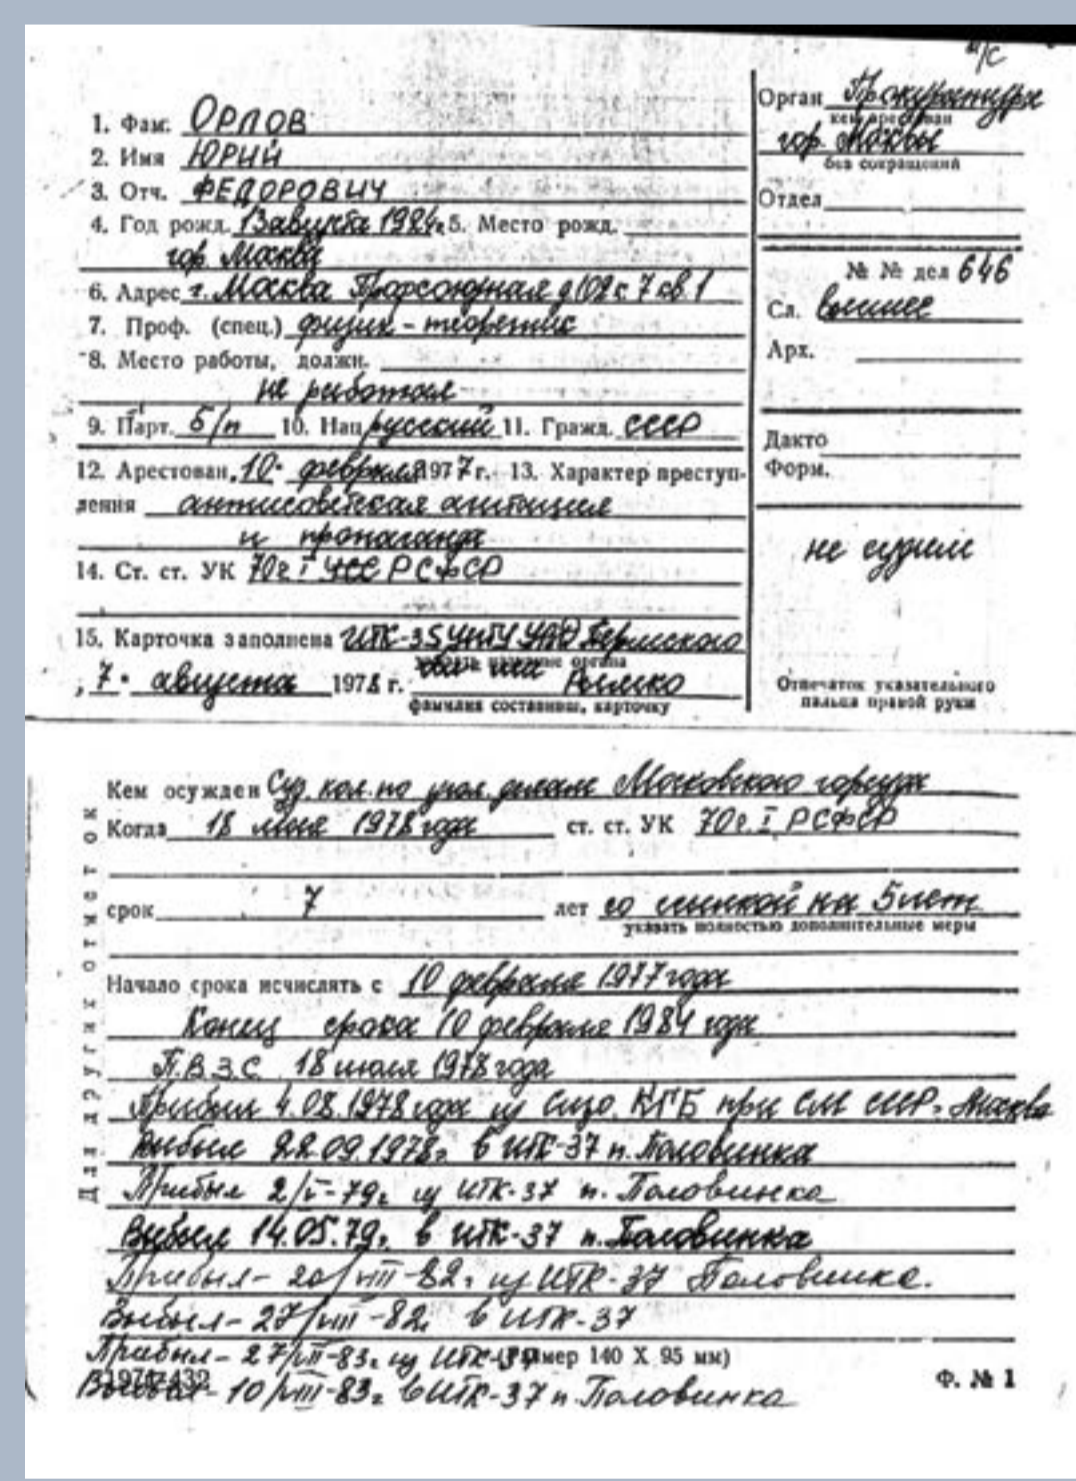 а/с
1. Фам. ОРЛОВ
2. Имя ЮРИЙ
3. Отч. ФЕДОРОВИЧ
4. Год рожд. 13 августа 1924г. 5. Место рожд.
гор. Москва
6. Адрес г. Москва Профсоюзная д 102 к. 7 кв. 1
7. Проф. (спец.) физик - теоретик
8. Место работы, должн.
не работал
9. Парт. б/п 10. Нац русский 11. Гражд. СССР
12. Арестован „10" февраля 1977 г. 13. Характер преступ-
ления антисоветская агитация
и пропаганда
14. Ст. ст. УК 70 ч. I УК РСФСР
15. Карточка заполнена ИТК-35 УИТУ УВД Пермского
название органа
„7" августа 1978 г.
фамилия составивш. карточку
Орган Прокуратура
кем арестован
гор. Москвы
без сокращений
Отдел
№ № дел 646
Сл. высшее
Арх.
Дакто
Форм.
не судим
Отпечаток указательного
пальца правой руки
Для других отметок
Кем осужден Суд. кол. по угол. делам Московского горсуда
Когда 18 1978 года ст. ст. УК 70 ч. I РСФСР
срок 7 лет со ссылкой на 5 лет
указать полностью дополнительные меры
Начало срока исчислять с 10 февраля 1977 года
Конец срока 10 февраля 1984 года
П.В.З.С. 18 июля 1978 года
Прибыл 4.08.1978 года из Сизо КГБ при СМ СССР г. Москва
Выбыл 22.09.1978г. в ИТК-37 п. Половинка
Прибыл 2/V-79г из ИТК-37 п. Половинка
Выбыл 14.05.79г. в ИТК-37 п. Половинка
Прибыл - 20/VIII-82г из ИТК-37 Половинка.
Выбыл - 27/VIII-82г в ИТК-37
Прибыл - 27/VII-83г из ИТК-37 (Размер 140 X 95 мм)
Выбыл - 10/VIII-83г в ИТК-37 п. Половинка
Ф. № 1